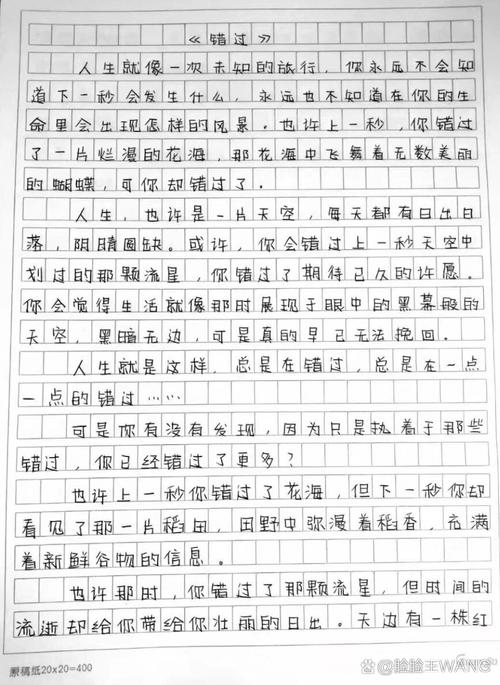 《错过》
人生就像一次未知的旅行，你永远不会知
道下一秒会发生什么，永远也不知道在你的生
命里会出现怎样的风景。也许上一秒，你错过
了一片烂漫的花海，那花海中飞舞着无数美丽
的蝴蝶，可你却错过了。
人生，也许是一片天空，每天都有日出日
落，阴晴圆缺。或许，你会错过上一秒天空中
划过的那颗流星，你错过了期待已久的许愿。
你会觉得生活就像那时展现于眼中的黑幕般的
天空，黑暗无边，可是真的早已无法挽回。
人生就是这样，总是在错过，总是在一点
一点的错过……
可是你有没有发现，因为只是执着于那些
错过，你已经错过了更多？
也许上一秒你错过了花海，但下一秒你却
看见了那一片稻田，田野中弥漫着稻香，充满
着新鲜谷物的信息。
也许那时，你错过了那颗流星，但时间的
流逝却给你带给你壮丽的日出。天边有一株红
原稿纸20x20=400
@脸脸王WANG